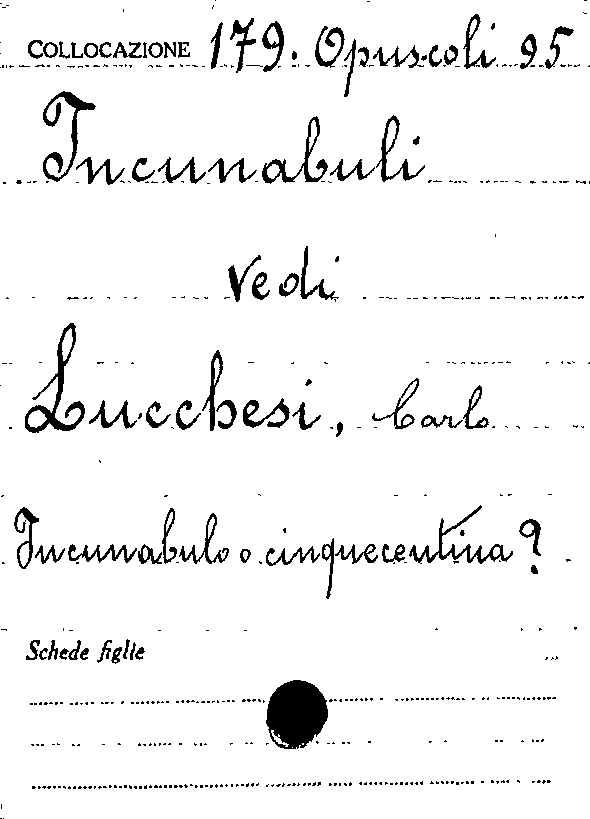 COLLOCAZIONE 179. Opuscoli 95
Incunabuli
Vedi
Lucchesi, Carlo
Incunabulo o cinquecentina?
Schede figlie